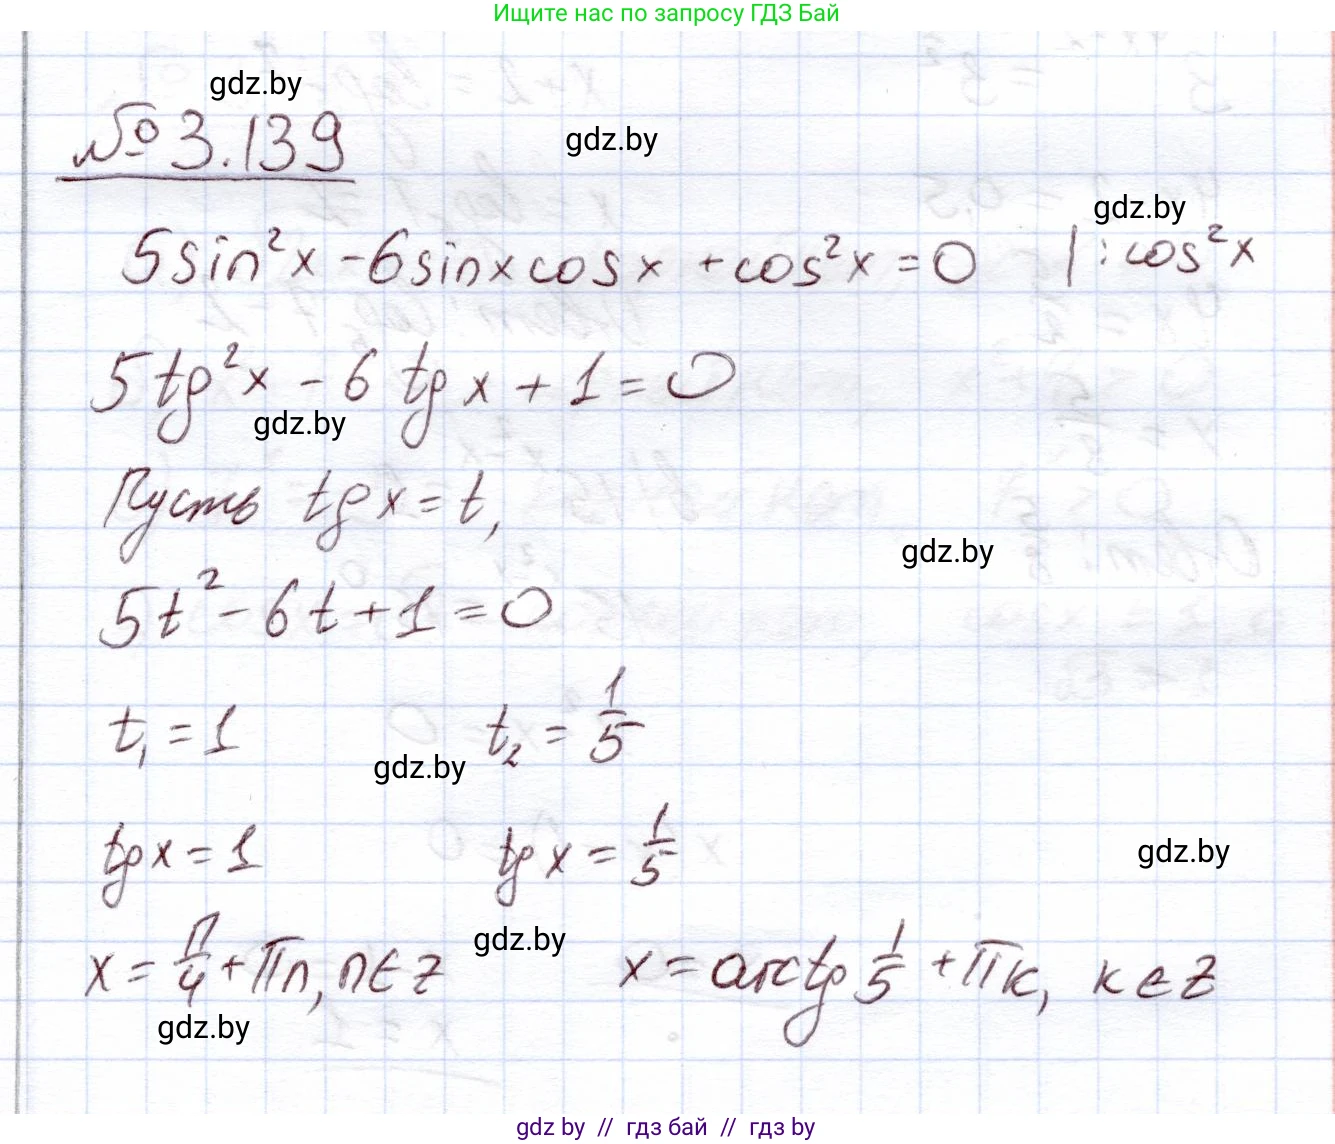 Ищите нас по запросу ГДЗ Бай
gdz.by
№ 3.139
gdz.by
gdz.by
5sin²x - 6sinxcosx + cos²x = 0 | : cos²x
5tg²x - 6tgx + 1 = 0
gdz.by
Пусть tgx = t,
gdz.by
5t² - 6t + 1 = 0
t₁ = 1 t₂ = 1/5
gdz.by
tgx = 1 tgx = 1/5
gdz.by
gdz.by
x = π/4 + πn, n ∈ z x = arctg 1/5 + πк, к ∈ z
gdz.by
gdz by // гдз бай // гдз by